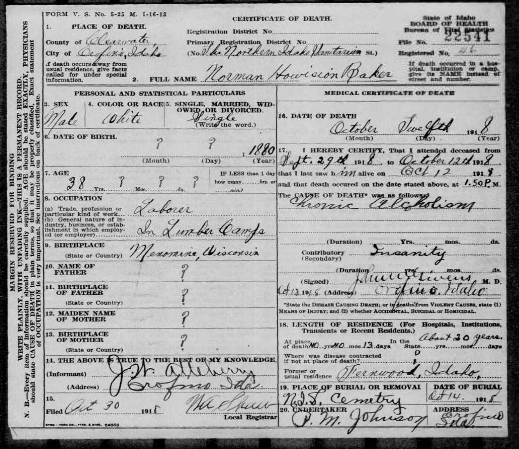 FORM V. S. No. 5-25 M. 1-16-18
CERTIFICATE OF DEATH.
State of Idaho
BOARD OF HEALTH
Bureau of Vital Statistics
1. PLACE OF DEATH.
Registration District No.
22541
County of Clearwater
Primary Registration District No.
File No.
City of Orofino, Idaho
(No. The Northern Idaho Sanitarium St.)
Registered No. 46
If death occurs away from usual residence, give facts called for under special information.
2. FULL NAME Norman Howision Baker
If death occurred in a hospital, institution or camp, give its NAME instead of street and number.
PERSONAL AND STATISTICAL PARTICULARS
3. SEX Male
4. COLOR OR RACE White
5. SINGLE, MARRIED, WIDOWED, OR DIVORCED. Single
(Write the word.)
6. DATE OF BIRTH ? ? 1880
(Month) (Day) (Year)
7. AGE 38 Yrs. ? mos. ? ds.
IF LESS than 1 day how many hrs or min
8. OCCUPATION
(a) Trade, profession or particular kind of work Laborer
(b) General nature of industry, business, or establishment in which employed or employer In Lumber Camps
9. BIRTHPLACE
(State or Country) Menomine, Wisconsin
10. NAME OF FATHER ?
11. BIRTHPLACE OF FATHER ?
(State or Country)
12. MAIDEN NAME OF MOTHER ?
13. BIRTHPLACE OF MOTHER ?
(State or Country)
14. THE ABOVE IS TRUE TO THE BEST OF MY KNOWLEDGE
(Informant) J. W. Atteberry
(Address) Orofino Ida
15.
Filed Oct 30 1918
Local Registrar
MEDICAL CERTIFICATE OF DEATH
16. DATE OF DEATH
October Twelfth 1918
(Month) (Day) (Year)
17. I HEREBY CERTIFY, That I attended deceased from
Sept. 29th 1918 to October 12th 1918
that I last saw him alive on Oct 12 1918
and that death occurred on the date stated above, at 1.50 P.M.
The CAUSE OF DEATH was as follows:
Chronic Alcoholism
(Duration) Yrs. mos. ds.
Contributory Insanity
(Secondary)
(Duration) Yrs. mos. ds.
(Signed) M. D.
Oct 13 1918 Orofino, Idaho
State the DISEASE CAUSING DEATH; or in deaths from VIOLENT CAUSES, state (1) MEANS OF INJURY; and (2) whether ACCIDENTAL, SUICIDAL or HOMICIDAL.
18. LENGTH OF RESIDENCE (For Hospitals, Institutions, Transients or Recent Residents.)
At place of death yrs. mos. 13 days In the State About 20 years
Where was disease contracted if not at place of death? ?
Former or usual residence Steenwood, Idaho,
19. PLACE OF BURIAL OR REMOVAL DATE OF BURIAL
N.I.S. Cemetry Oct 14 1918
20. UNDERTAKER ADDRESS
P. M. Johnson Orofino Ida
MARGIN RESERVED FOR BINDING
WRITE PLAINLY, WITH UNFADING INK—THIS IS A PERMANENT RECORD.